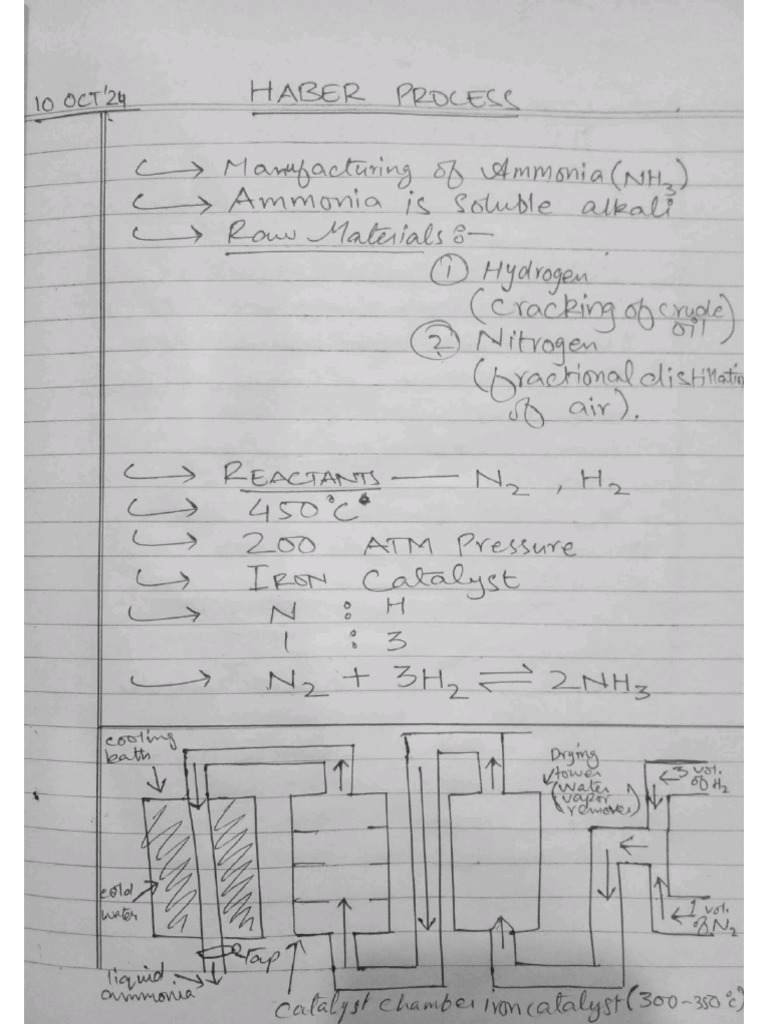 10 OCT'24
HABER PROCESS
Manufacturing of Ammonia (NH3)
Ammonia is soluble alkali
Raw Materials :-
① Hydrogen
(cracking of crude
oil)
② Nitrogen
(fractional distillation
of air).
REACTANTS — N2 , H2
450°C
200 ATM Pressure
IRON Catalyst
N : H
1 : 3
N2 + 3H2 ⇌ 2NH3
cooling
bath
Drying
tower
(water
vapor
remover)
3 vol.
of H2
cold
water
1 vol.
of N2
Tap
liquid
ammonia
catalyst chamber iron catalyst (300-350°C)